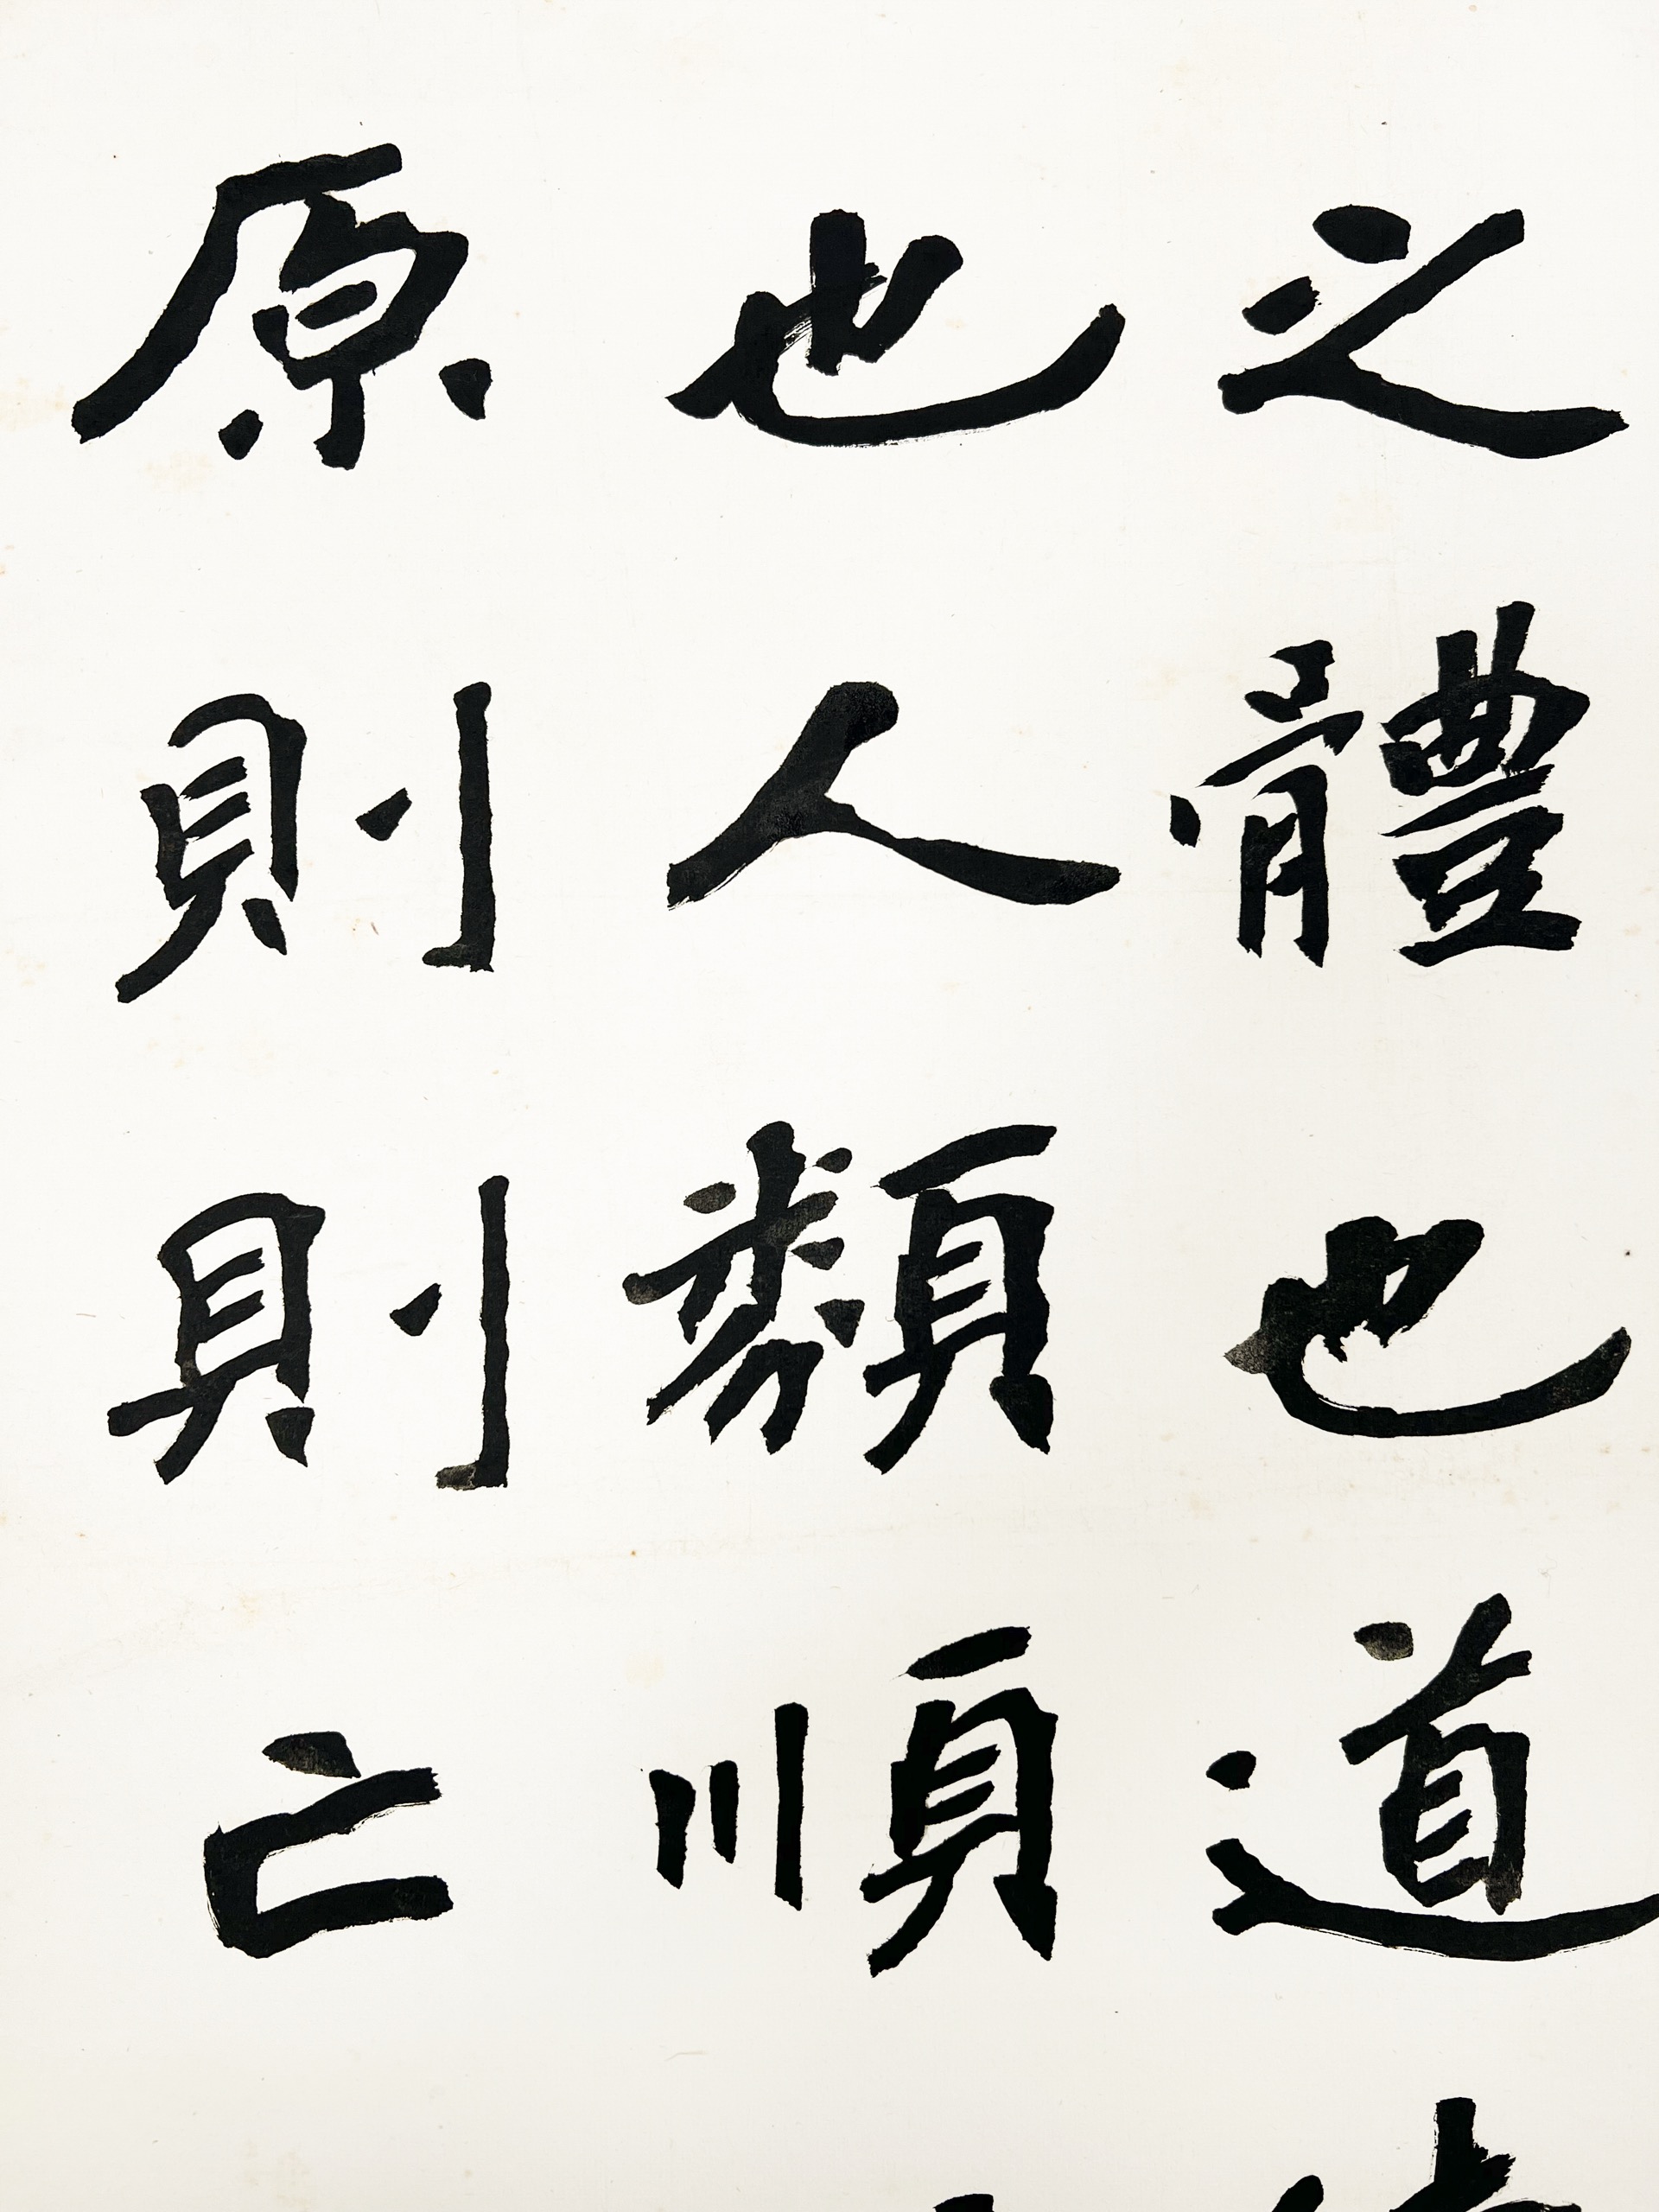 之體也道
也人類順
原則則亡